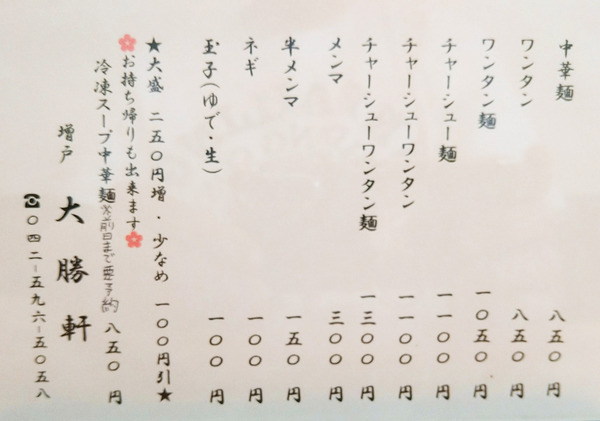 中華麺 八五〇円
ワンタン 八五〇円
ワンタン麺 一〇五〇円
チャーシュー麺 一一〇〇円
チャーシューワンタン 一一〇〇円
チャーシューワンタン麺 一三〇〇円
メンマ 三〇〇円
半メンマ 一五〇円
ネギ 一〇〇円
玉子(ゆで・生) 一〇〇円
★大盛 二五〇円増・少なめ 一〇〇円引★
お持ち帰りも出来ます
冷凍スープ中華麺※前日まで要予約 八五〇円
増戸 大勝軒
☎〇四二-五九六-五〇五八